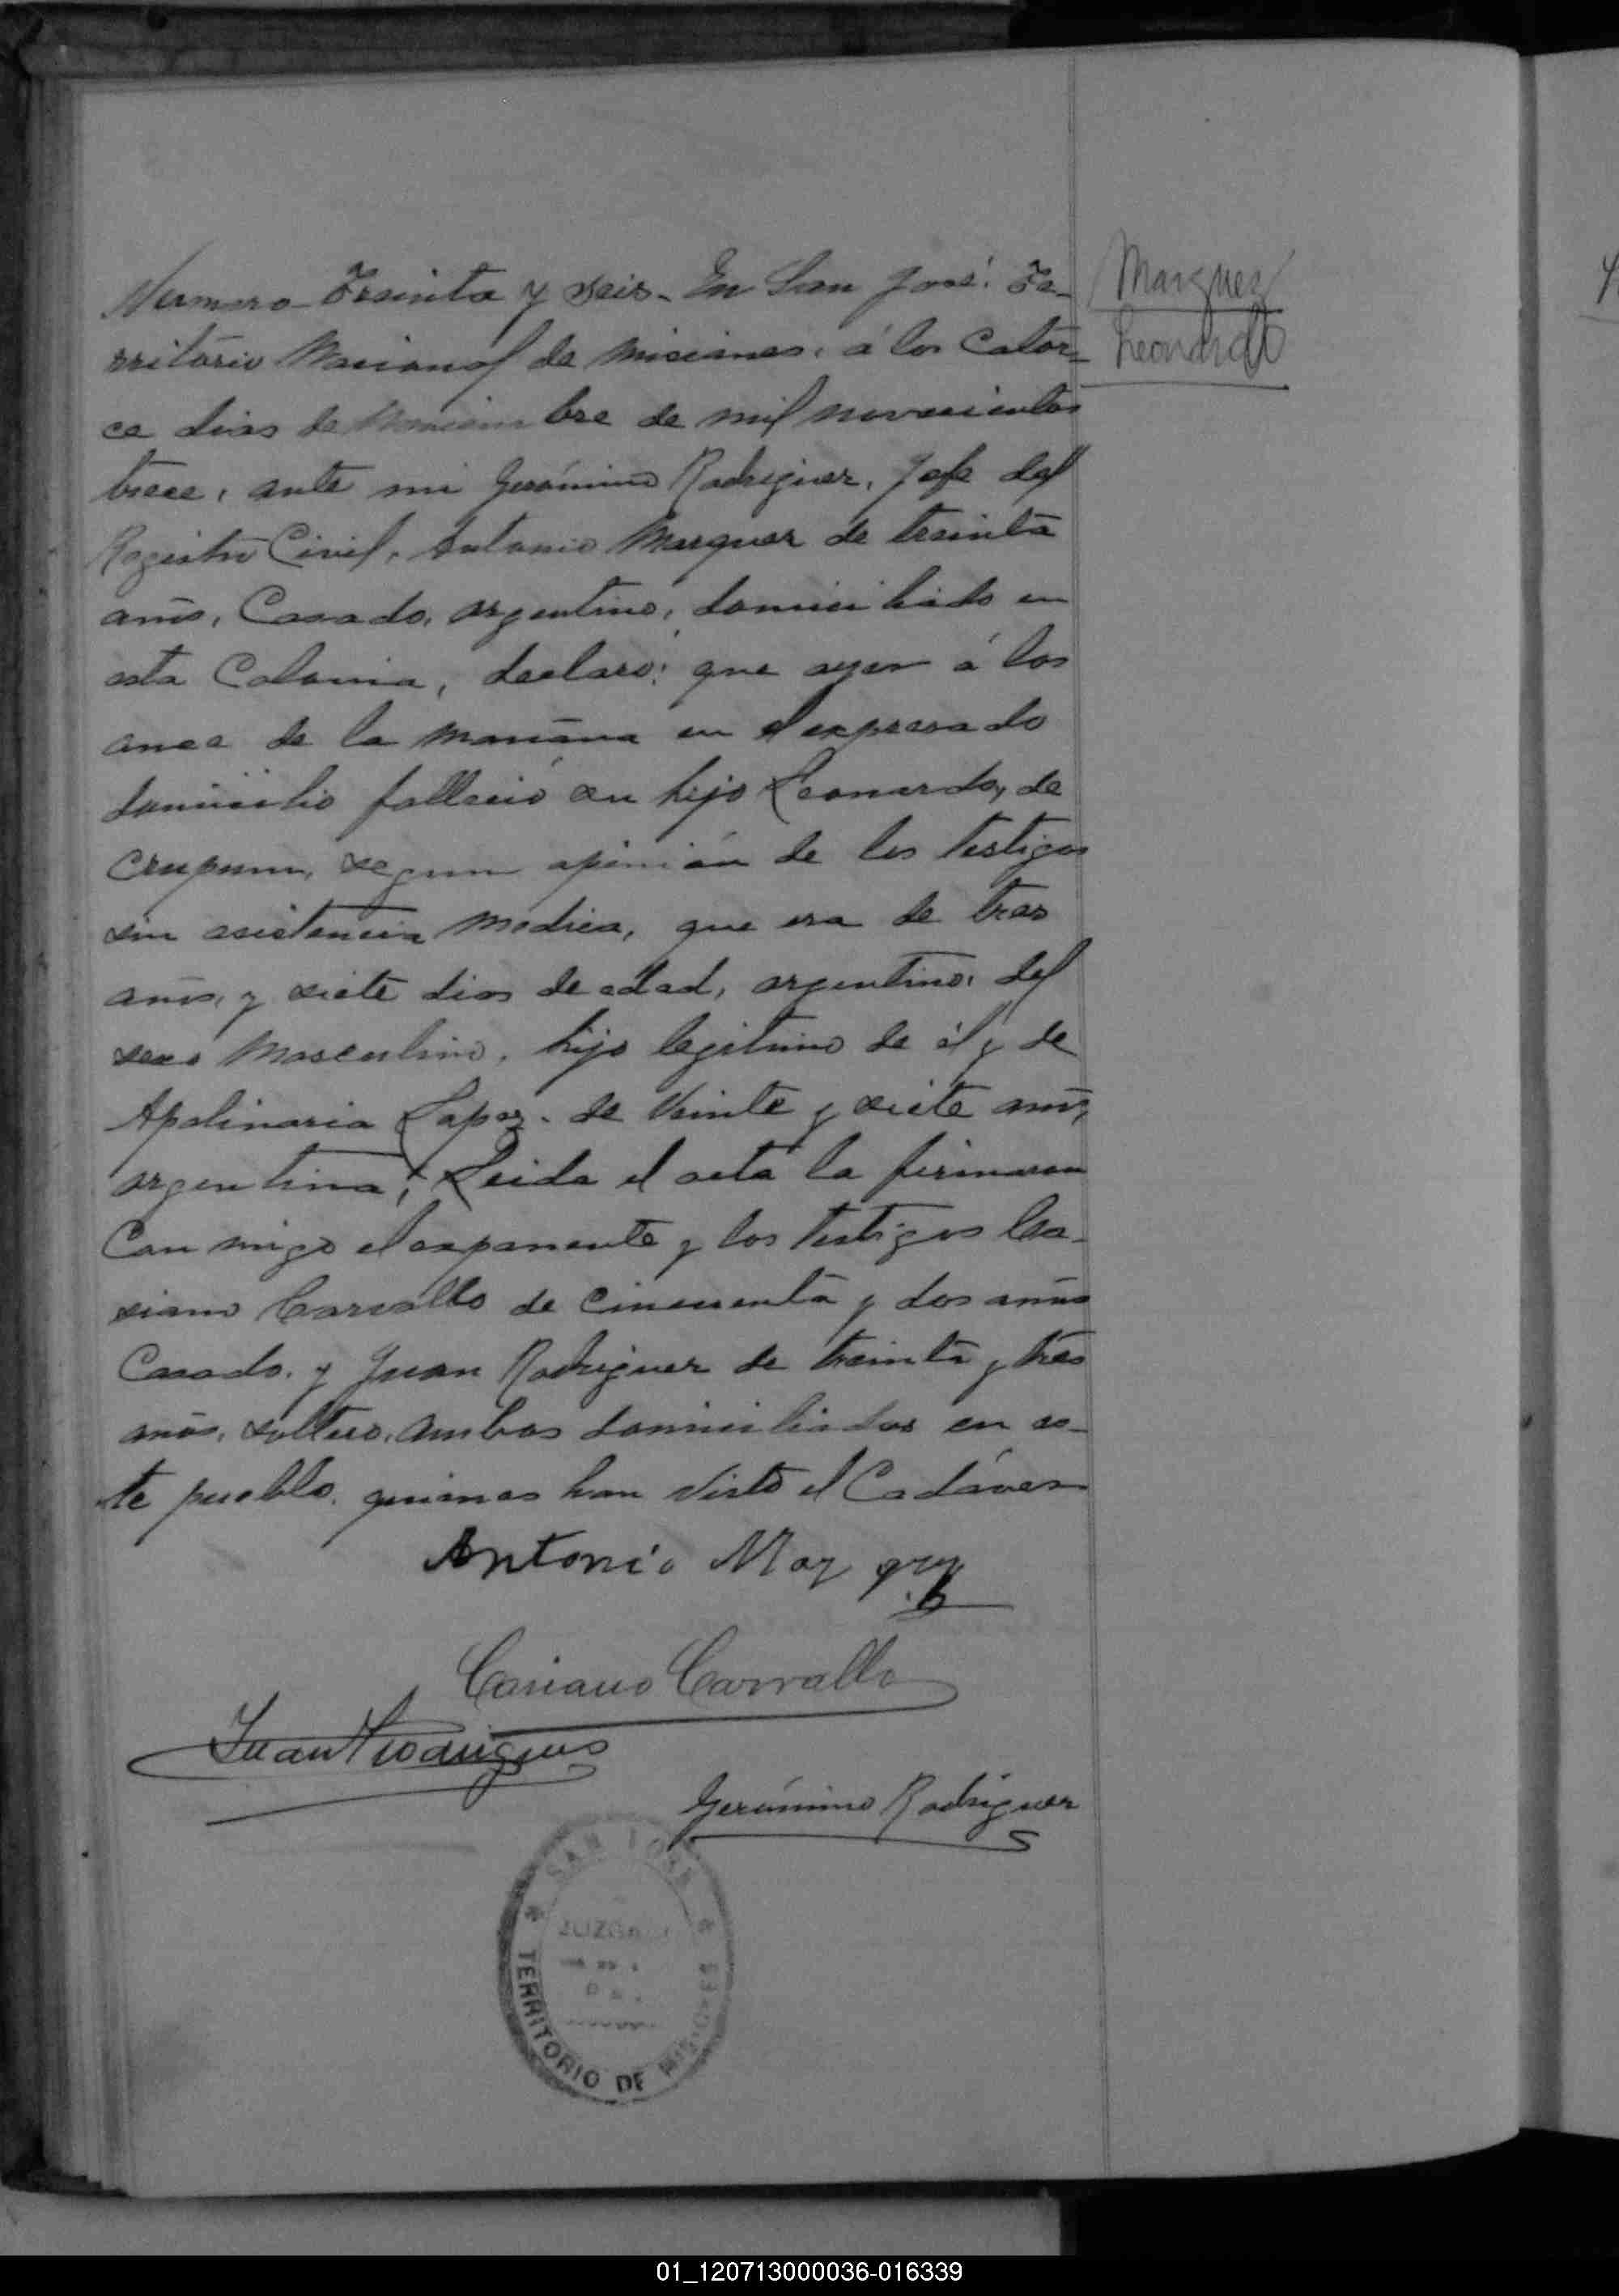 Numero Treinta y seis. En San José: Te-
rritório Nacional de Misiones, á los Cator-
ce dias de Noviembre de mil novecientos
trece, ante mi Gerónimo Rodriguez, Jefe del
Registro Civil, Antonio Marquez de treinta
años, Casado, argentino, domiciliado en
esta Colonia, declaró: que ayer á las
once de la mañana en el expresado
domicilio falleció su hijo Leonardo, de
segun opinión de los testigos
sin asistencia medica, que era de tres
años, y siete dias de edad, argentino, del
sexo Masculino, hijo legitimo de él y de
Apolinaria Lopez. de Veinte y siete años,
argentina; Leida el acta la firmaron
Con migo el exponente y los testigos Ca-
siano Carvallo de Cincuenta y dos años
Casado. y Juan Rodriguez de treinta y tres
años, soltero, ambos domiciliados en es-
te pueblo, quienes han visto el Cadáver
Marquez
Leonardo
Antonio Mar quez
Casiano Carvallo
Juan Rodrigues
Gerónimo Rodriguez
SAN JOSE
JUZGADO
TERRITORIO DE MISIONES
01_120713000036-016339